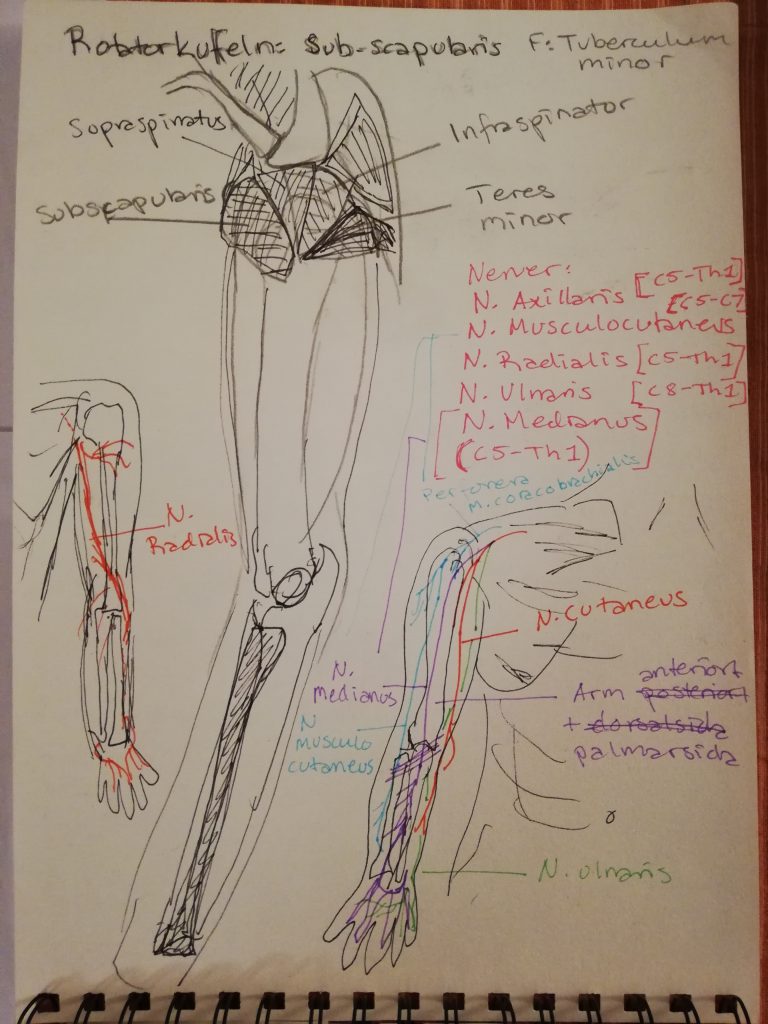 Rotatorkuffeln: Sub-scapularis F: Tuberculum
minor
Sopraspinatus
Infraspinator
Subscapularis
Teres
minor
Nerver:
N. Axillaris [C5-Th1]
[C5-C7]
N. Musculocutaneus
N. Radialis [C5-Th1]
N. Ulnaris [C8-Th1]
[N. Medianus
(C5-Th1)]
M. coracobrachialis
N.
Radialis
N. Cutaneus
N.
medianus
anteriort
Arm posteriort
+ dorsalsida
palmarsida
N
musculo
cutaneus
N. Ulnaris